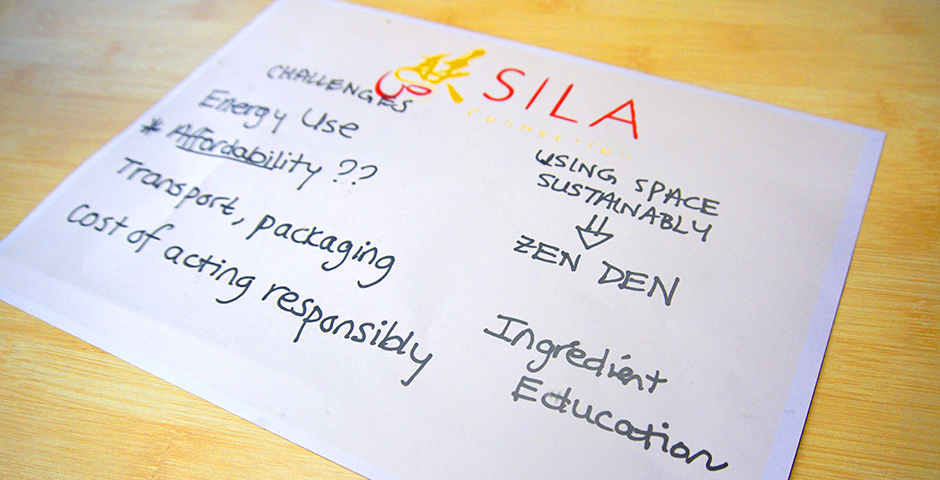 SILA
connection
CHALLENGES
Energy Use
* Affordability ??
Transport, packaging
Cost of acting responsibly
USING SPACE
SUSTAINABLY
⇓
ZEN DEN
Ingredient
Education